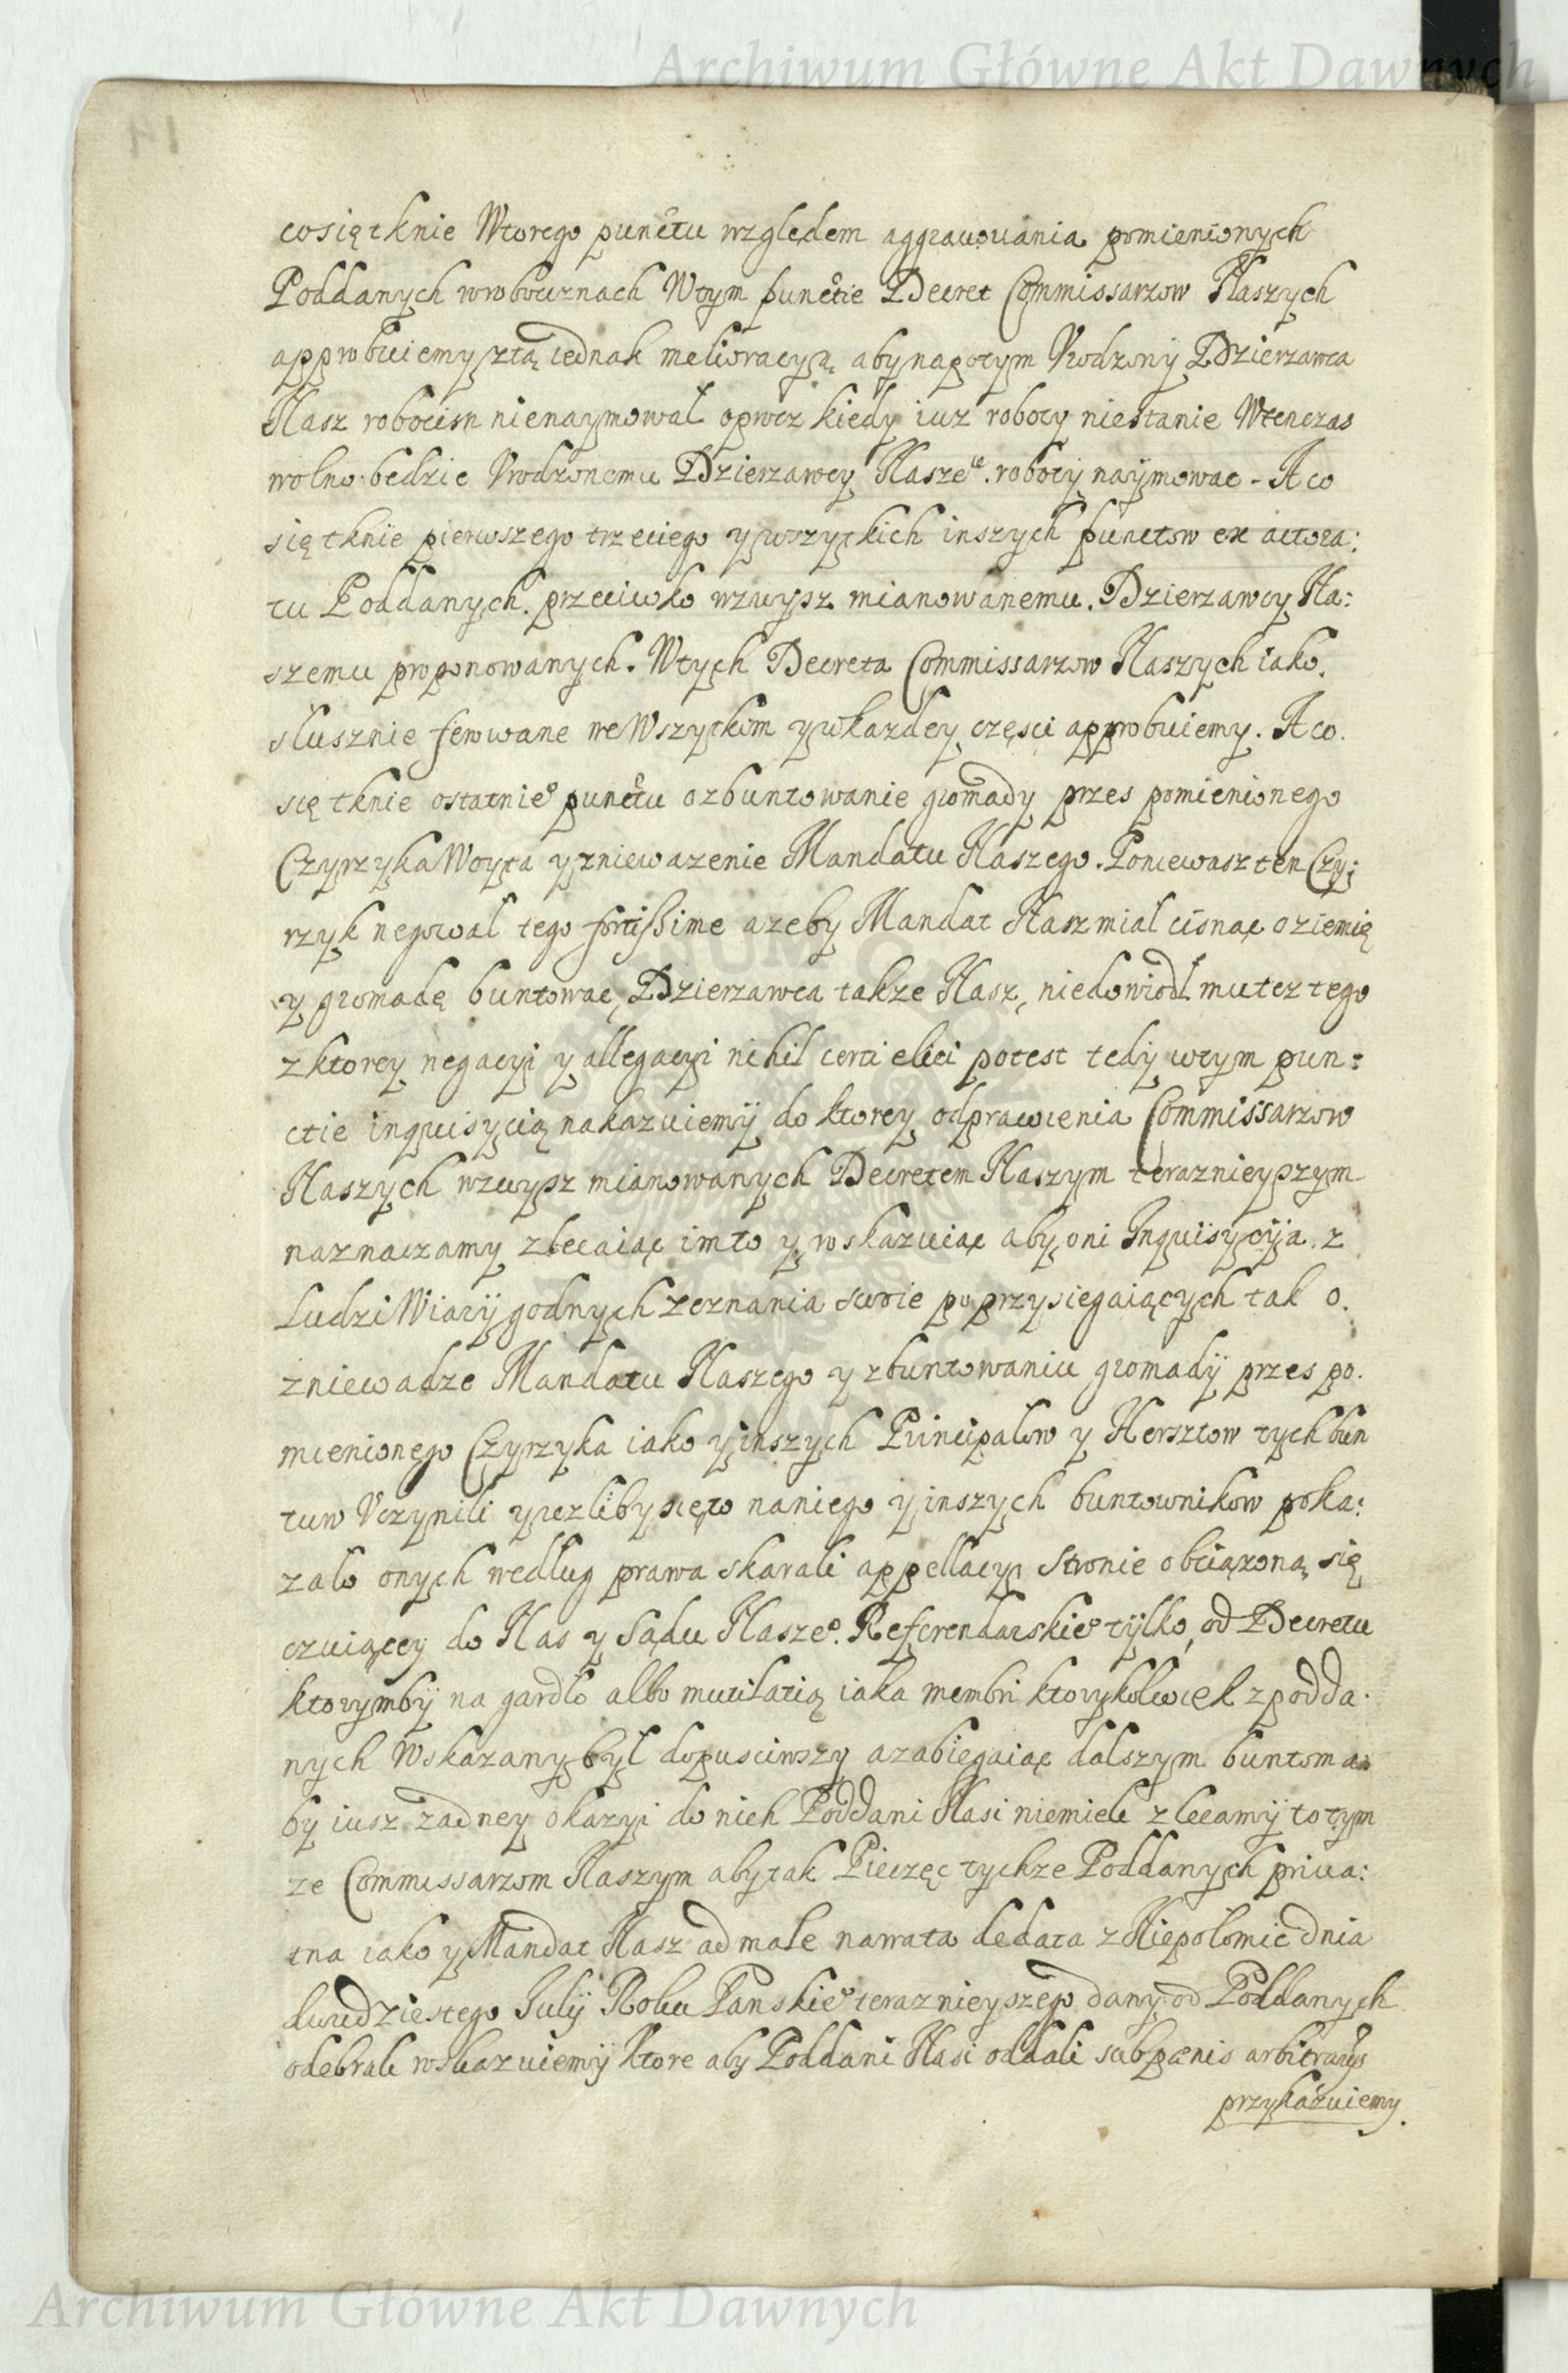 Archiwum Główne Akt Dawnych
cosię tknie Wtorego punctu względem aggrauouania pomienionych
Poddanych wrobociznach Wtym punctie Decret Commissarzow Naszych
approbuiemy sztą iednak melioracyą abynapotym Vrodzony Dzierzawca
Nasz robocisn nienaymował oprocz kiedy iuz roboty niestanie Wtenczas
wolno bedzie Vrodzonemu Dzierzawcy Nasze^u roboty naymowac - A co
się tknie pierwszego trzeciego y wszytkich inszych punctow ex actora:
tu Poddanych przeciwko wzwysz mianowanemu Dzierzawcy Na:
szemu proponowanych. Wtych Decreta Commissarzow Naszych iako
słusznie ferowane we Wszytkim y wkazdey części approbuiemy. A co
się tknie ostatnie^o punctu ozbuntowanie gromady przes pomienionego
Czyrzyka Woyta y zniewazenie Mandatu Naszego. Poniewasz ten Czy:
rzyk negował tego fortissime azeby Mandat Nasz miał cisnąc o ziemię
y gromadę buntowac, Dzierzawca takze Nasz, niedowiodł mu tez tego
z ktorey negacyi y allegacyi nihil certi elici potest tedy wtym pun:
ctie inquisycią nakazuiemy do ktorey odprawienia Commissarzow
Naszych wzwysz mianowanych Decretem Naszym teraznieyszym
naznaczamy zlecaiąc imto y wskazuiąc aby oni Inquisycyja z
Ludzi Wiary godnych zeznania swoie poprzysiegaiących tak o
zniewadze Mandatu Naszego y zbuntowaniu gromady przes po
mienionego Czyrzyka iako y inszych Principalow y Hersztow tych bun
tuw Vczynili y iezliby sięto naniego y inszych buntownikow poka:
zało onych według prawa skarali appellacyi stronie obciązoną się
czuiącey do Nas y Sądu Nasze^o Referendarskie^o tylko, od Decretu
ktorymby na gardło albo mutilatią iaka membri ktorykolwiek z podda
nych Wskazany był dopusciwszy a zabiegaiąc dalszym buntom a
by iusz zadney okazyi do nich Poddani Nasi niemieli zlecamy to tym
ze Commissarzom Naszym aby tak Pieczęc tychze Poddanych priua:
tna iako y Mandat Nasz ad male narrata de data z Niepołomic dnia
dwudziestego July Roku Panskie^o teraznieyszego dany od Poddanych
odebrali wskazuiemy ktore aby Poddani Nasi oddali sub pœnis arbitrarys
przykazuiemy.
Archiwum Główne Akt Dawnych